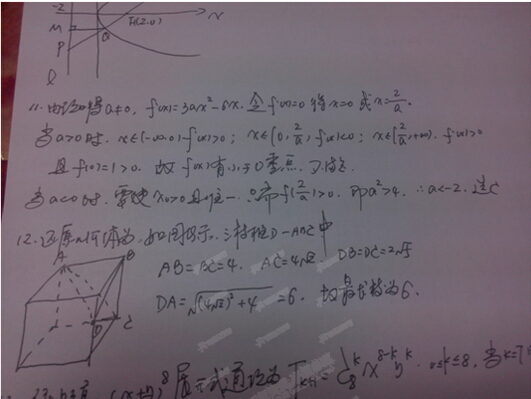 -2
x
M
F(2,0)
P
Q
l
11. 由题知得a≠0, f'(x)=3ax²-6x. 令f'(x)=0 得x=0 或x=2/a.
当a>0时, x∈(-∞,0) f'(x)>0; x∈(0, 2/a) f'(x)<0; x∈(2/a,+∞). f'(x)>0
且f(0)=1>0. 故f(x)有小于0零点. 不符
当a<0时, 要使x₀>0且唯一. 只需f(2/a)>0. 即a²>4. ∴a<-2. 选C
12. 还原几何体为, 如图所示. 三棱锥D-ABC中
A
B
D
C
AB=BC=4. AC=4√2. DB=DC=2√5
DA=√((4√2)²+4) =6. 故最长棱为6.
8 展开式通项为 T_{k+1}=C_8^k x^{8-k} y^k. 0≤k≤8. 当k=7